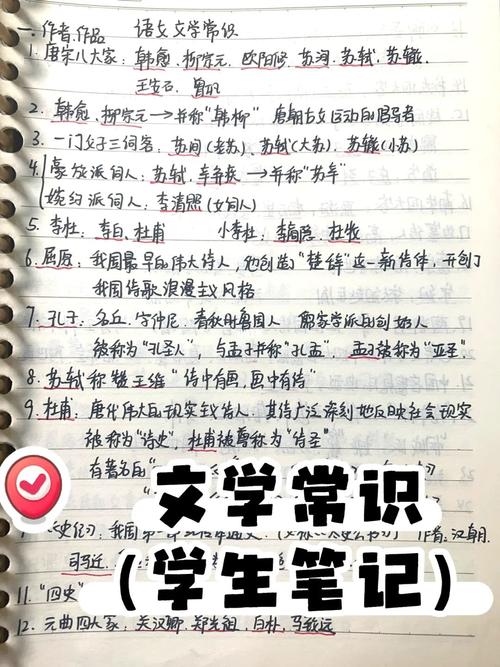 语文文学常识
一.作者.作品
1. 唐宋八大家：韩愈.柳宗元.欧阳修.苏洵.苏轼.苏辙.
王安石. 曾巩
2. 韩愈.柳宗元→并称"韩柳" 唐朝古文运动的倡导者
3. 一门父子三词客：苏洵(老苏).苏轼(大苏).苏辙(小苏)
4. 豪放派词人：苏轼.辛弃疾→并称"苏辛"
婉约派词人：李清照(女词人)
5. 李杜：李白.杜甫 小李杜：李商隐.杜牧
6. 屈原：我国最早的伟大诗人，他创造了"楚辞"这一新诗体，开创了
我国诗歌浪漫主义风格
7. 孔子：名丘.字仲尼.春秋时鲁国人 儒家学派的创始人
被称为"孔圣人"，与孟子并称"孔孟"，孟子被称为"亚圣".
8. 苏轼称赞王维"诗中有画，画中有诗"
9. 杜甫：唐代伟大的现实主义诗人，其诗广泛深刻地反映社会现实
被称为"诗史"，杜甫被尊称为"诗圣"
有著名的"
文学常识
作者：汉朝
司马迁
(学生笔记)
11. "四史"
12. 元曲四大家：关汉卿.郑光祖.白朴.马致远